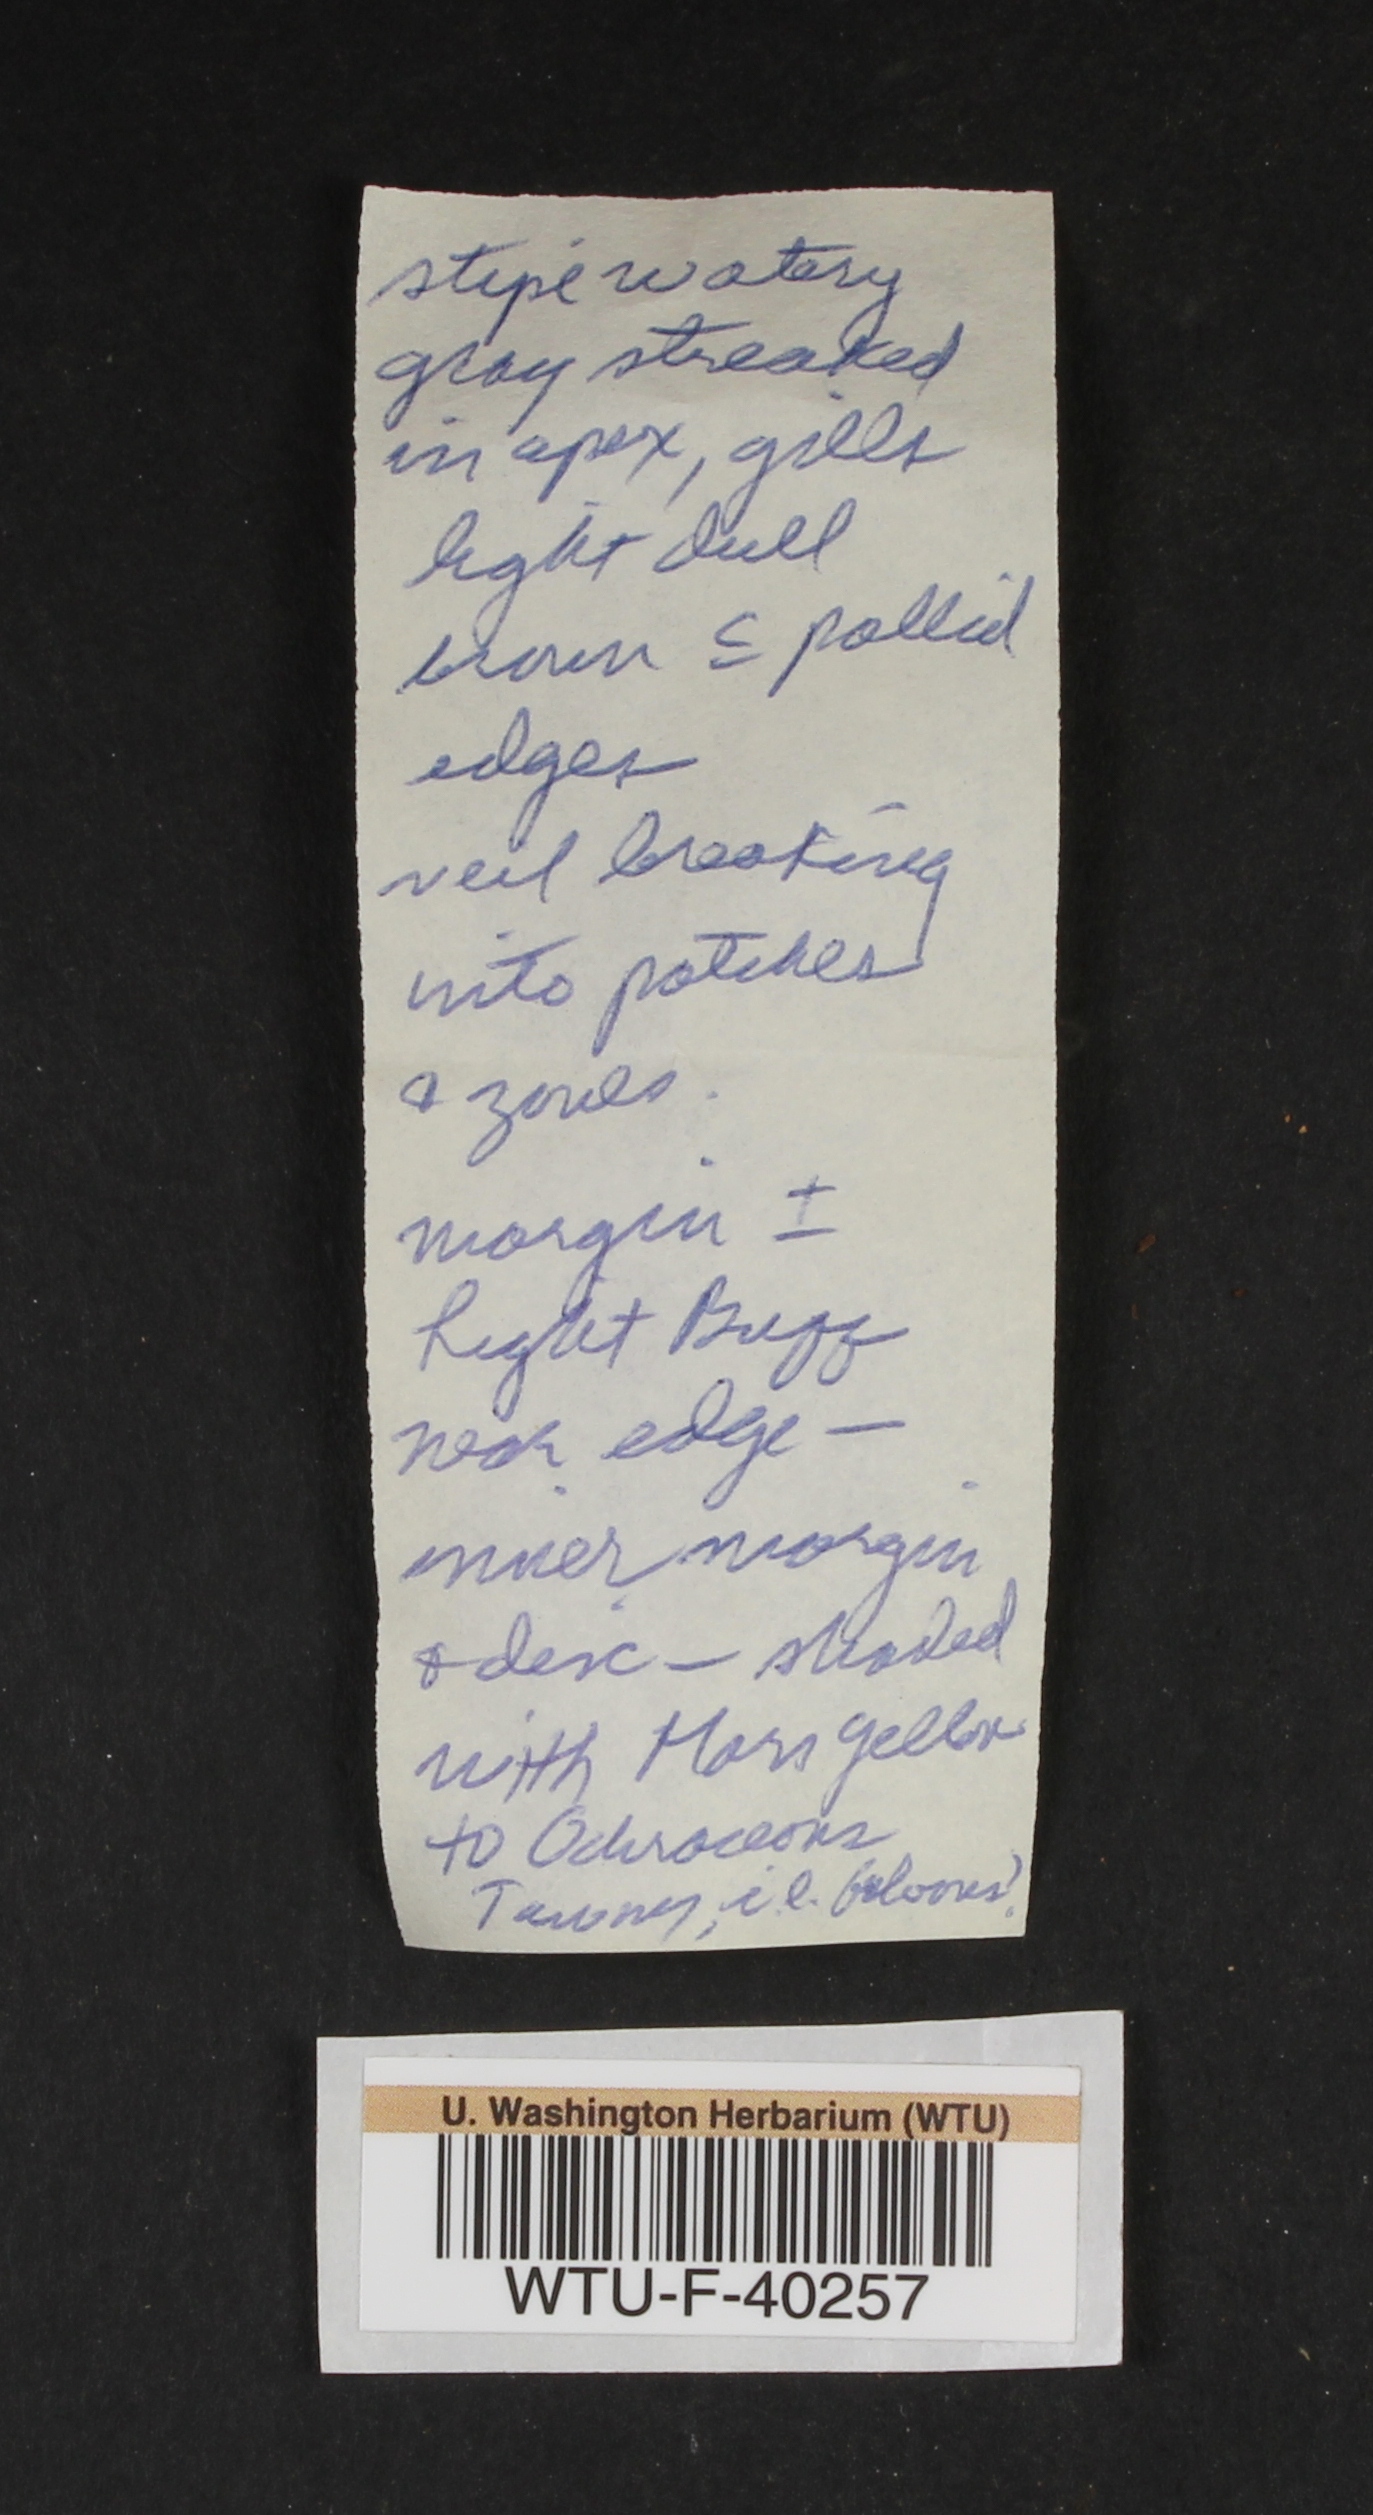 stipe watery
gray streaked
in apex, gills
light dull
brown c̄ pallid
edges
veil breaking
into patches
& zones.
margin ±
Light Buff
near edge —
inner margin
& disc — shaded
with Mars Yellow
to Ochraceous
Tawny, i.e.
U. Washington Herbarium (WTU)
WTU-F-40257